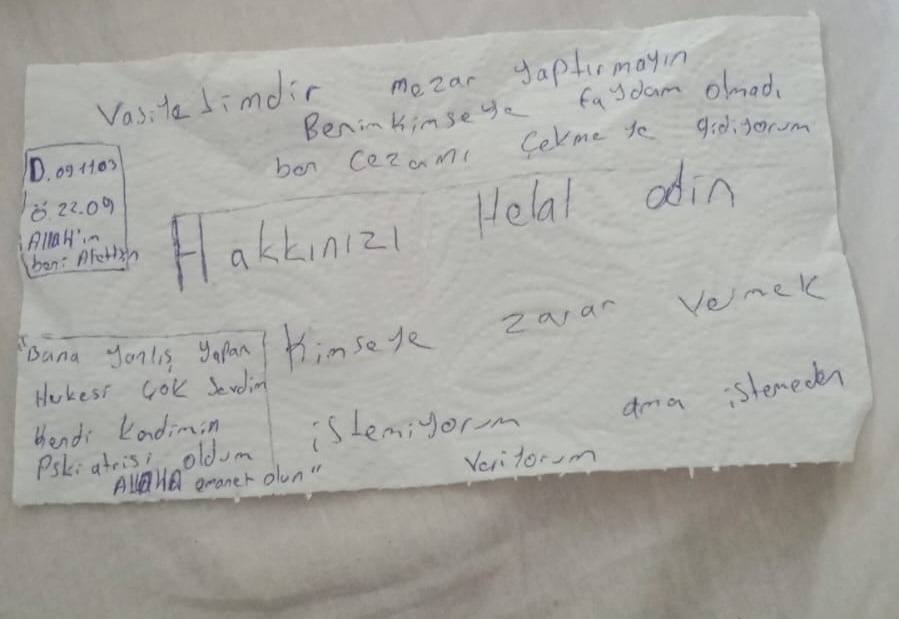 Vasiyetimdir mezar yaptırmayın
Benim kimseye faydam olmadı
ben cezamı çekmeye gidiyorum
D. 09 11 03
Ö. 22.09
AllaH'ın
beni Affettsin
Hakkınızı Helal edin
Kimseye zarar vermek
istemiyorum ama istemeden
veriyorum
"Bana yanlış yapan
Herkesi çok Sevdim
Kendi Kendimin
Pskiatrisi oldum
AllaHa emanet olun"